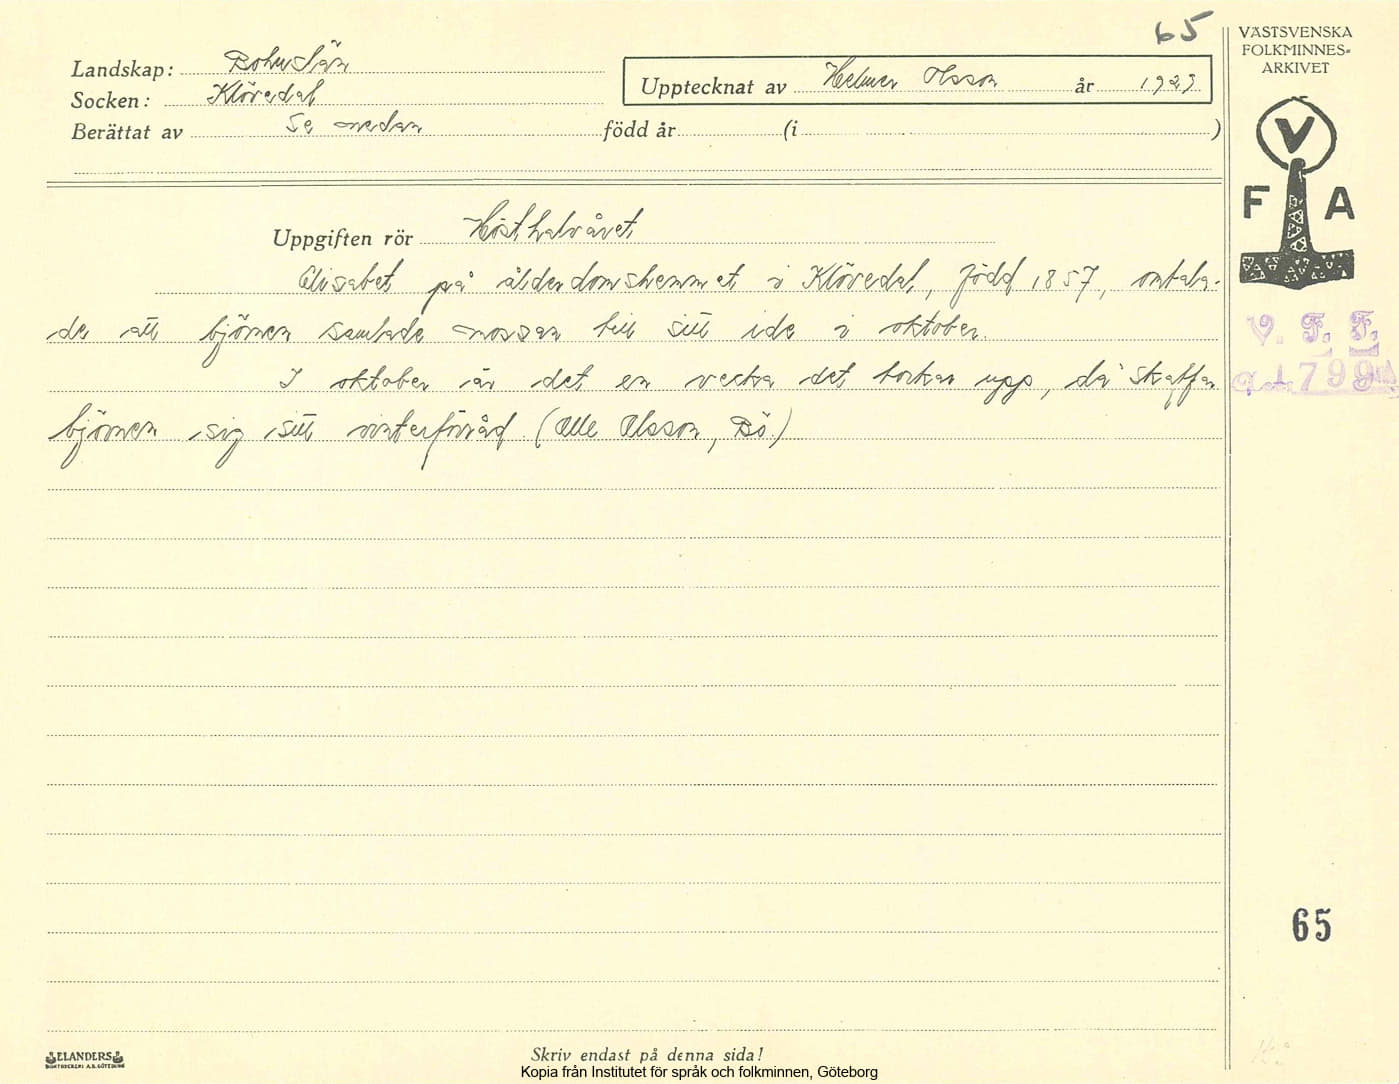 65
VÄSTSVENSKA
FOLKMINNES-
ARKIVET
Landskap: Bohuslän
Socken: Klövedal
Upptecknat av Helmer Olsson år 1929
Berättat av Se nedan född år (i )
V
F A
Uppgiften rör Hösthalvåret
Elisabet på ålderdomshemmet i Klövedal, född 1857, omtala-
de att björnen samlade mossan till sitt ide i oktober.
I oktober är det en vecka det torkar upp, då skaffar
björnen sig sitt vinterförråd. (Olle Olsson, Bö.)
V. F. F.
799
65
ELANDERS
BOKTRYCKERI A.B. GÖTEBORG
Skriv endast på denna sida!
Kopia från Institutet för språk och folkminnen, Göteborg